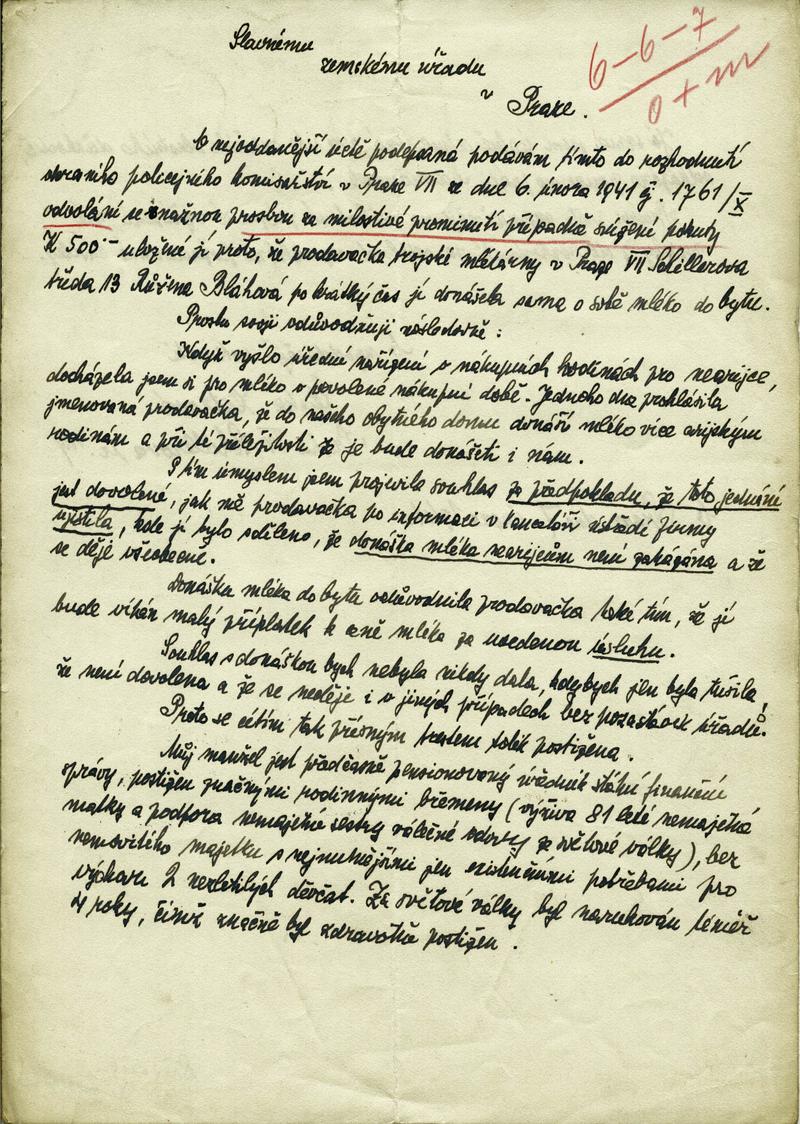 Slavnému
zemskému úřadu
v Praze.
6-6-7
0+m
V nejoddanější úctě podepsaná podávám tímto do rozhodnutí
zdejšího policejního komisařství v Praze VII ze dne 6. února 1941 č. 1761/X
odvolání se snažnou prosbou za milostivé prominutí případně snížení pokuty
K 500·- uložené jí proto, že prodavačka trojské mlékárny v Praze VII Schillerova
třída 13 Růžena Bláhová po krátký čas jí donášela sama o sobě mléko do bytu.
Prosbu svoji odůvodňuji následovně:
Když vyšlo úřední nařízení o nákupních hodinách pro nearijce,
docházela jsem si pro mléko v povolené nákupní době. Jednoho dne prohlásila
jmenovaná prodavačka, že do našeho obytného domu donáší mléko více arijským
rodinám a při té příležitosti že je bude donášeti i nám.
S tím úmyslem jsem projevila souhlas za předpokladu, že toto jednání
jest dovolené, jak mě prodavačka po informaci v kanceláři ústředí firmy
ujistila, kde jí bylo sděleno, že donáška mléka nearijcům není zakázána a že
se děje všeobecně.
Donášku mléka do bytu odůvodnila prodavačka také tím, že jí
bude vítán malý příplatek k ceně mléka za uvedenou úsluhu.
Souhlas s donáškou bych nebyla nikdy dala, kdybych jen byla tušila,
že není dovolena a že se neděje i v jiných případech bez pozastávek úřadů!
Proto se cítím tak přísným trestem tolik postižena.
Můj manžel jest předčasně pensionovaný úředník státní finanční
správy, postižen značnými rodinnými břemeny (výživa 81 leté nemajetné
matky a podpora nemajetné sestry válečné vdovy ze světové války), bez
nemovitého majetku s nejnutnějšími jen existenčními potřebami pro
výchovu 2 nezletilých děvčat. Za světové války byl narukován téměř
4 roky, čímž značně byl zdravotně postižen.